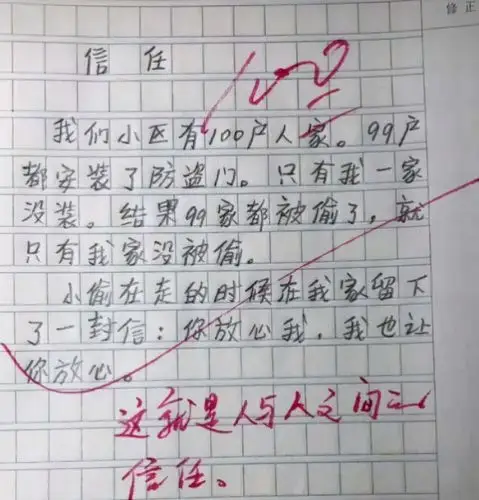 修正
信任
100
我们小区有100户人家。99户
都安装了防盗门。只有我一家
没装。结果99家都被偷了,就
只有我家没被偷。
小偷在走的时候在我家留下
了一封信:你放心我,我也让
你放心。
这就是人与人之间之
信任。